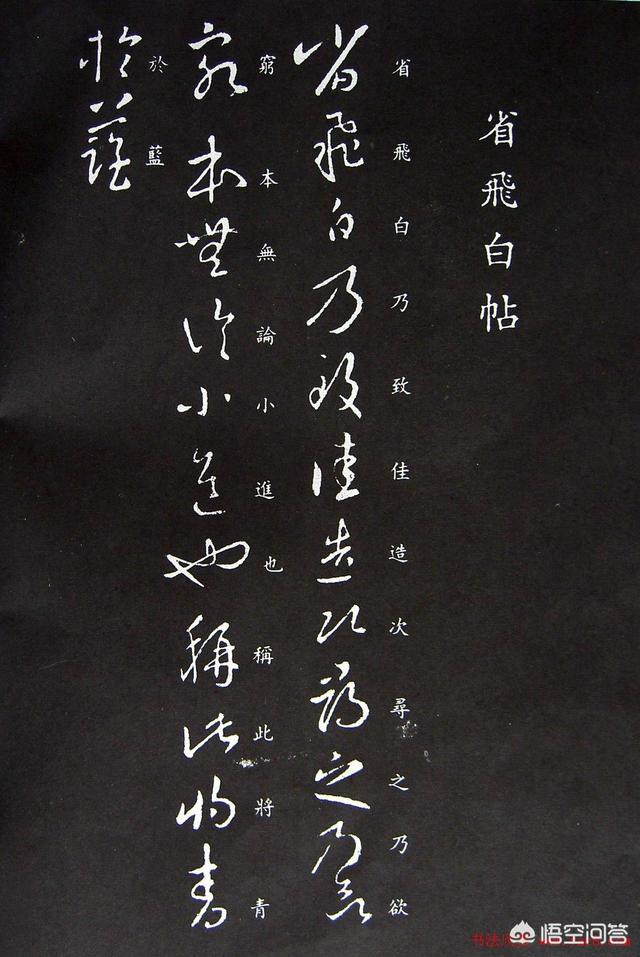 省飛白帖
省飛白乃致佳造次尋之乃欲
窮本無論小進也稱此將青
於藍
悟空问答